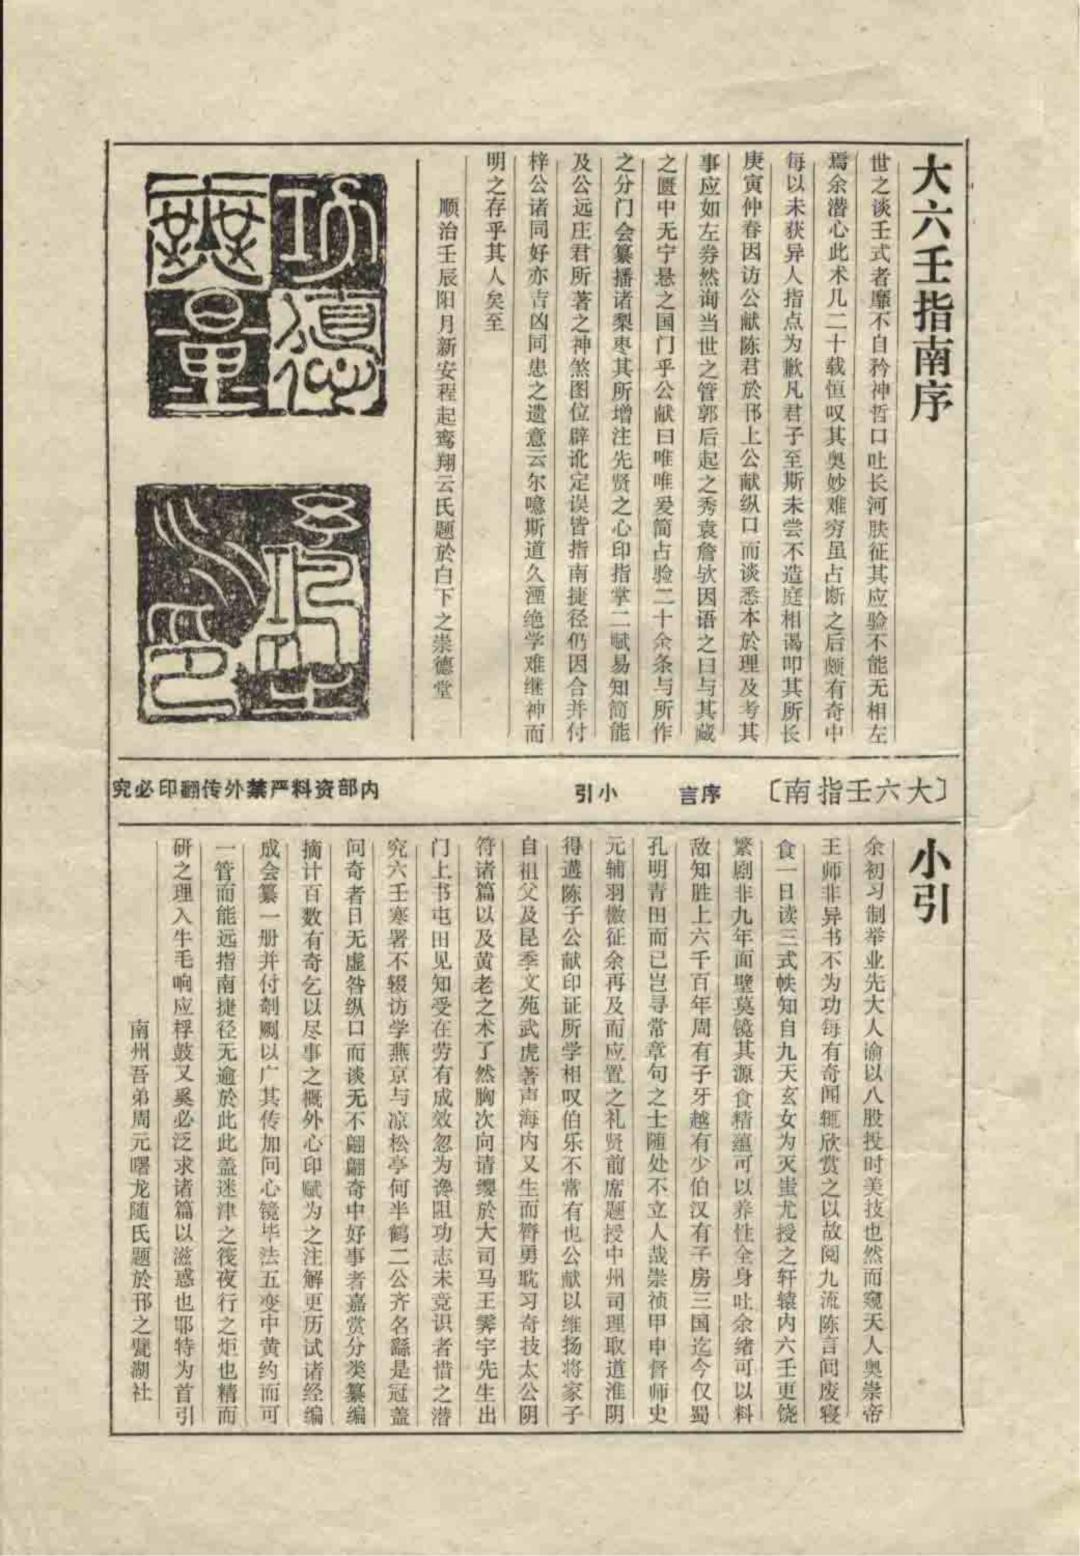 大六壬指南序
世之谈壬式者靡不自矜神哲口吐长河肤征其应验不能无相左
焉余潜心此术几二十载恒叹其奥妙难穷虽占断之后颇有奇中
每以未获异人指点为歉凡君子至斯未尝不造庭相谒叩其所长
庚寅仲春因访公献陈君於邗上公献纵口而谈悉本於理及考其
事应如左券然询当世之管郭后起之秀袁詹欤因语之曰与其藏
之匮中无宁悬之国门乎公献曰唯唯爰简占验二十余条与所作
之分门会纂播诸梨枣其所增注先贤之心印指掌二赋易知简能
及公远庄君所著之神煞图位辟讹定误皆指南捷径仍因合并付
梓公诸同好亦吉凶同患之遗意云尔噫斯道久湮绝学难继神而
明之存乎其人矣至
顺治壬辰阳月新安程起鸾翔云氏题於白下之崇德堂
功德
无量
〔大六壬指南〕
序言
小引
内部资料严禁外传翻印必究
小引
余初习制举业先大人谕以八股投时美技也然而窥天人奥崇帝
王师非异书不为功每有奇闻辄欣赏之以故阅九流陈言间废寝
食一日读三式帙知自九天玄女为灭蚩尤授之轩辕内六壬更饶
繁剧非九年面壁莫镜其源食精蕴可以养性全身吐余绪可以料
敌知胜上六千百年周有子牙越有少伯汉有子房三国迄今仅蜀
孔明青田而已岂寻常章句之士随处不立人哉崇祯甲申督师史
元辅羽檄征余再及而应置之礼贤前席题授中州司理取道淮阴
得遘陈子公献印证所学相叹伯乐不常有也公献以维扬将家子
自祖父及昆季文苑武虎著声海内又生而膂勇耽习奇技太公阴
符诸篇以及黄老之术了然胸次向请缨於大司马王霁宇先生出
门上书屯田见知受在劳有成效忽为谗阻功志未竞识者惜之潜
究六壬寒署不辍访学燕京与凉松亭何半鹤二公齐名繇是冠盖
问奇者日无虚咎纵口而谈无不翩翩奇中好事者嘉赏分类纂编
摘计百数有奇乞以尽事之概外心印赋为之注解更历试诸经编
成会纂一册并付剞劂以广其传加问心镜毕法五变中黄约而可
一管而能远指南捷径无逾於此此盖迷津之筏夜行之炬也精而
研之理入牛毛响应桴鼓又奚必泛求诸篇以滋惑也耶特为首引
南州吾弟周元曙龙随氏题於邗之甓湖社